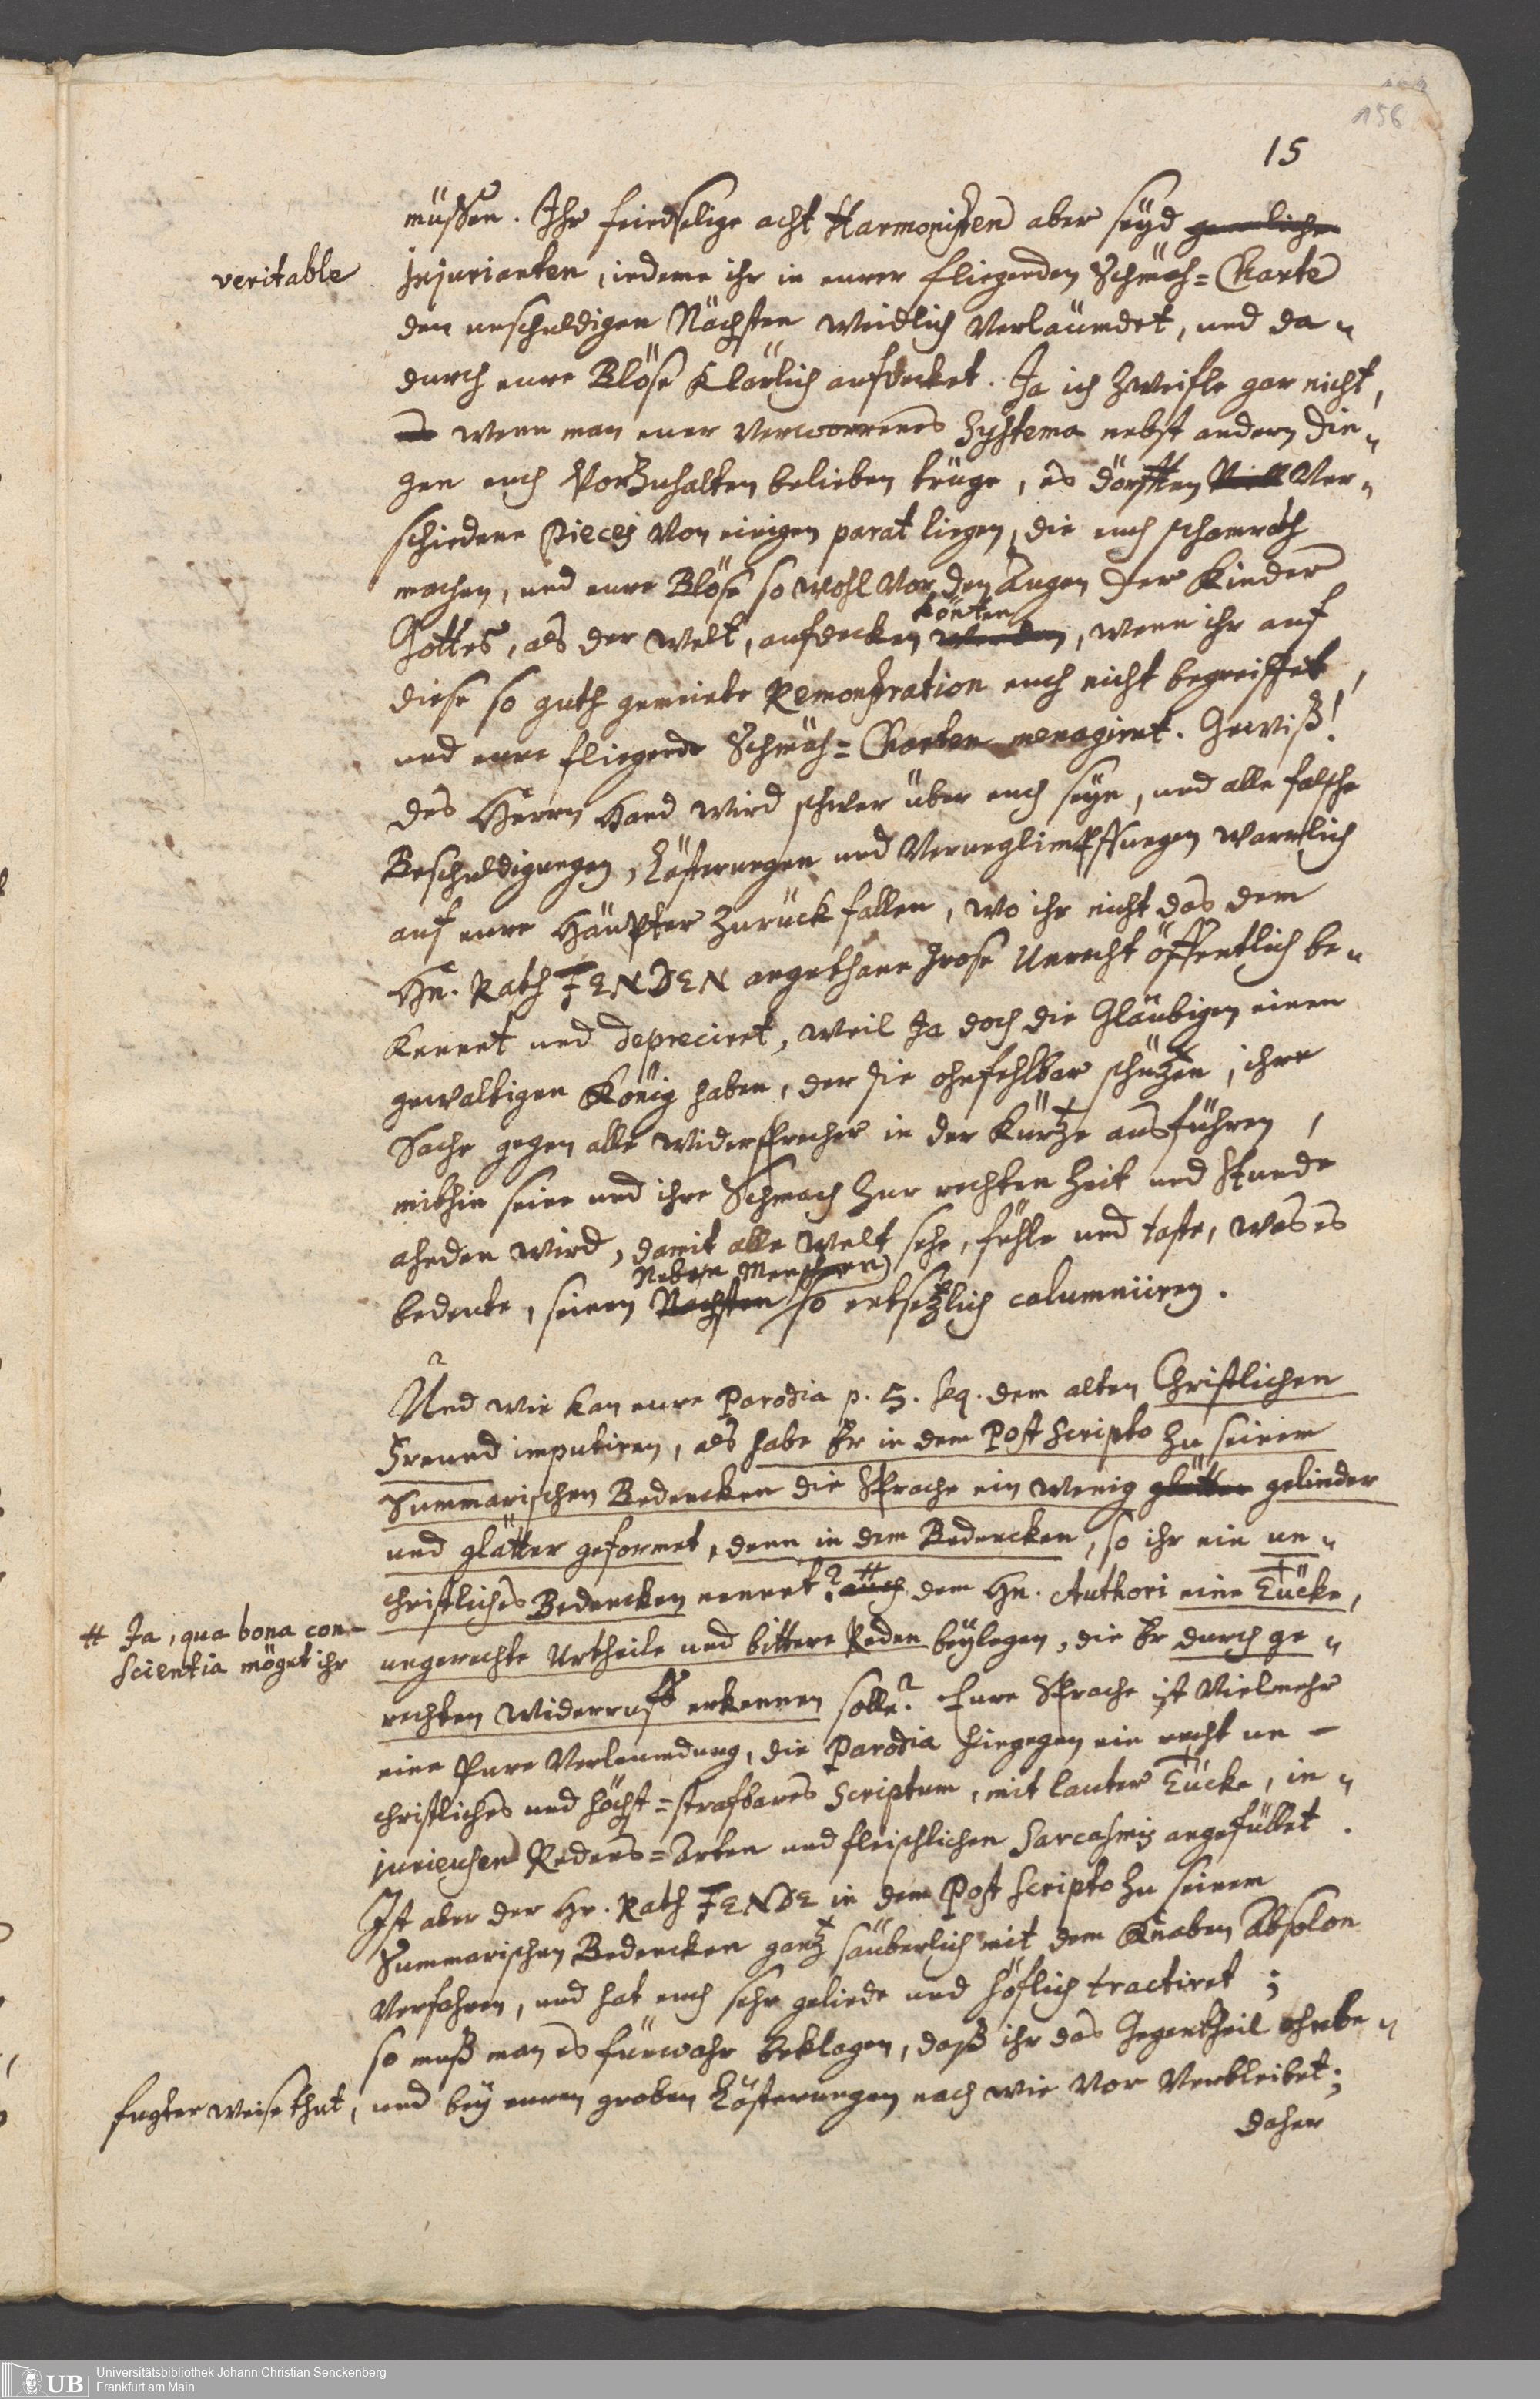 156
15
müssen. Ihr feindselige acht Harmonisten aber seyd
veritable
Injurianten, indeme ihr in eurer fliegenden Schmäh=Charte
den unschuldigen Nächsten weidlich verläumdet, und da„
durch eure Blöse klärlich aufdecket. Ja ich zweifle gar nicht,
wenn man euer verworrenes Systema nebst andern Din„
gen euch vorzuhalten belieben trüge, es dörfften Viell Ver„
schiedene Pieces von einigen parat liegen, die euch schamroth
machen, und eure Blöse so wohl vor den Augen der Kinder
könten
Gottes, als der Welt, aufdecken werden, wenn ihr auf
diese so guth gemeinte Remonstration euch nicht begreiffet,
und eure fliegende Schmäh=Charten menagiret. Gewiß!
des Herrn Hand wird schwer über euch seyn, und alle falsche
Beschuldigungen, Lästerungen und Verunglimpffungen warrlich
auf eure Häupter zurück fallen, wo ihr nicht das dem
Hn. Rath FENDEN angethane grose Unrecht öffentlich be„
kennet und depreciret, weil ja doch die Gläubigen einen
gewaltigen König haben, der sie ohnfehlbar schützen, ihre
Sache gegen alle Widersprecher in der Kürtze ausführen,
mithin seine und ihre Schmach zur rechten Zeit und Stunde
ahnden wird, damit alle Welt sehe, fühle und taste, was es
Neben Menschen
bedeute, seinen Nechsten so entsetzlich calumniiren.
Und wie kan eure Parodia p. 5. seq. dem alten Christlichen
Freund imputiren, als habe Er in dem Post Scripto zu seinem
Summarischen Bedencken die Sprache ein wenig glätter gelinder
und glätter geformet, denn in dem Bedencken, so ihr ein un„
christliches Bedencken nennet? # auch dem Hn. Authori eine Tücke,
# Ja, qua bona con-
scientia möget ihr
ungerechte Urtheile und bittere Reden beylegen, die Er durch ge„
rechten Widerruff erkennen solle? Eure Sprache ist vielmehr
eine pure Verleumdung, die Parodia hingegen ein recht un-
christliches und höchst=strafbares Scriptum, mit lauter Tücke, in„
jurieusen Redens=Arten und fleischlichen Sarcasmis angefüllet.
Ist aber der Hr. Rath FENDE in dem Post Scripto zu seinem
Summarischen Bedencken gantz säuberlich mit dem Knaben Absolon
verfahren, und hat euch sehr gelinde und höflich tractiret;
so muß man es fürwahr beklagen, daß ihr das Gegentheil ohnbe„
fugter weise thut, und bey euren groben Lästerungen nach wie vor verbleibet;
daher
UB Universitätsbibliothek Johann Christian Senckenberg
Frankfurt am Main